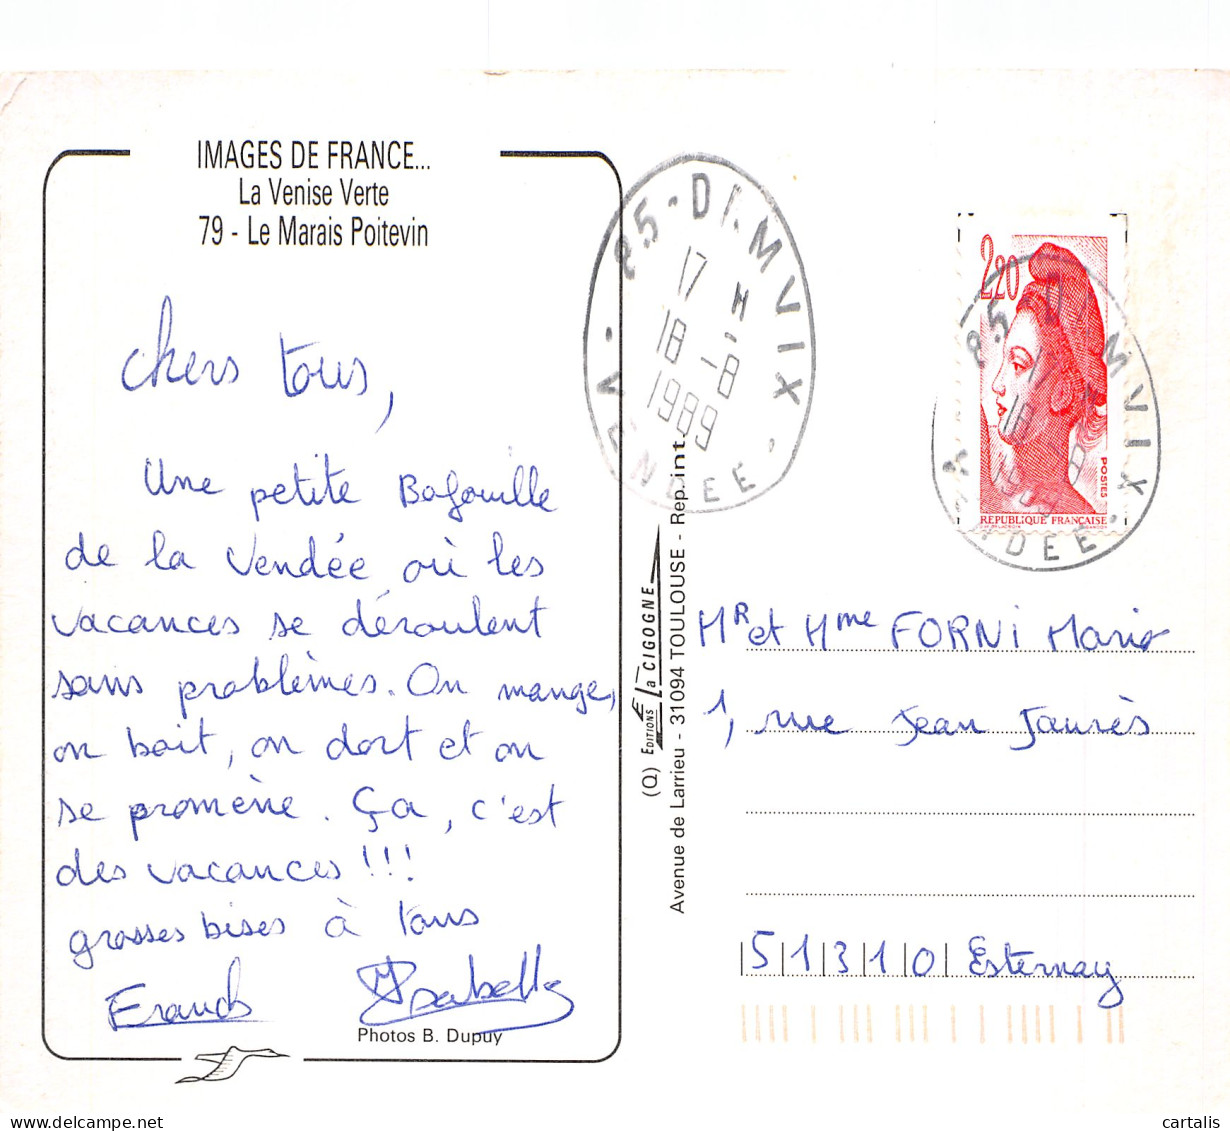 IMAGES DE FRANCE...
La Venise Verte
79 - Le Marais Poitevin
Chers tous,
Une petite Bafouille
de la Vendée où les
vacances se déroulent
sans problèmes. On mange,
on boit, on dort et on
se promène. Ça, c'est
des vacances !!!
grosses bises à tous
Franck Isabelle
Photos B. Dupuy
85 - DAMVIX
17 H
18 - 8
1989
VENDEE
(Q) EDITIONS La CIGOGNE
Avenue de Larrieu - 31094 TOULOUSE - Rep. int.
2,20
POSTES
REPUBLIQUE FRANCAISE
85 - DAMVIX
18 8
1989
VENDEE
Mr et Mme FORNI Mario
1, rue Jean Jaurès
51310 Esternay
cartalis